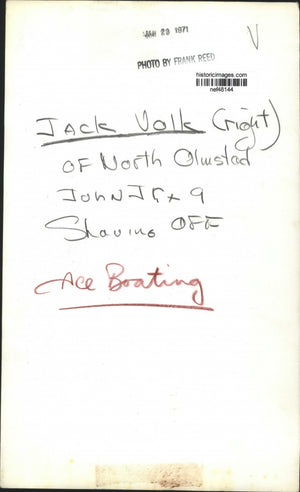 JAN 29 1971
PHOTO BY FRANK REED
historicimages.com
nef48144
V
JACK VOLK (right)
OF North Olmsted
JOHN JR 9
Shaving OFF
Ace Boating